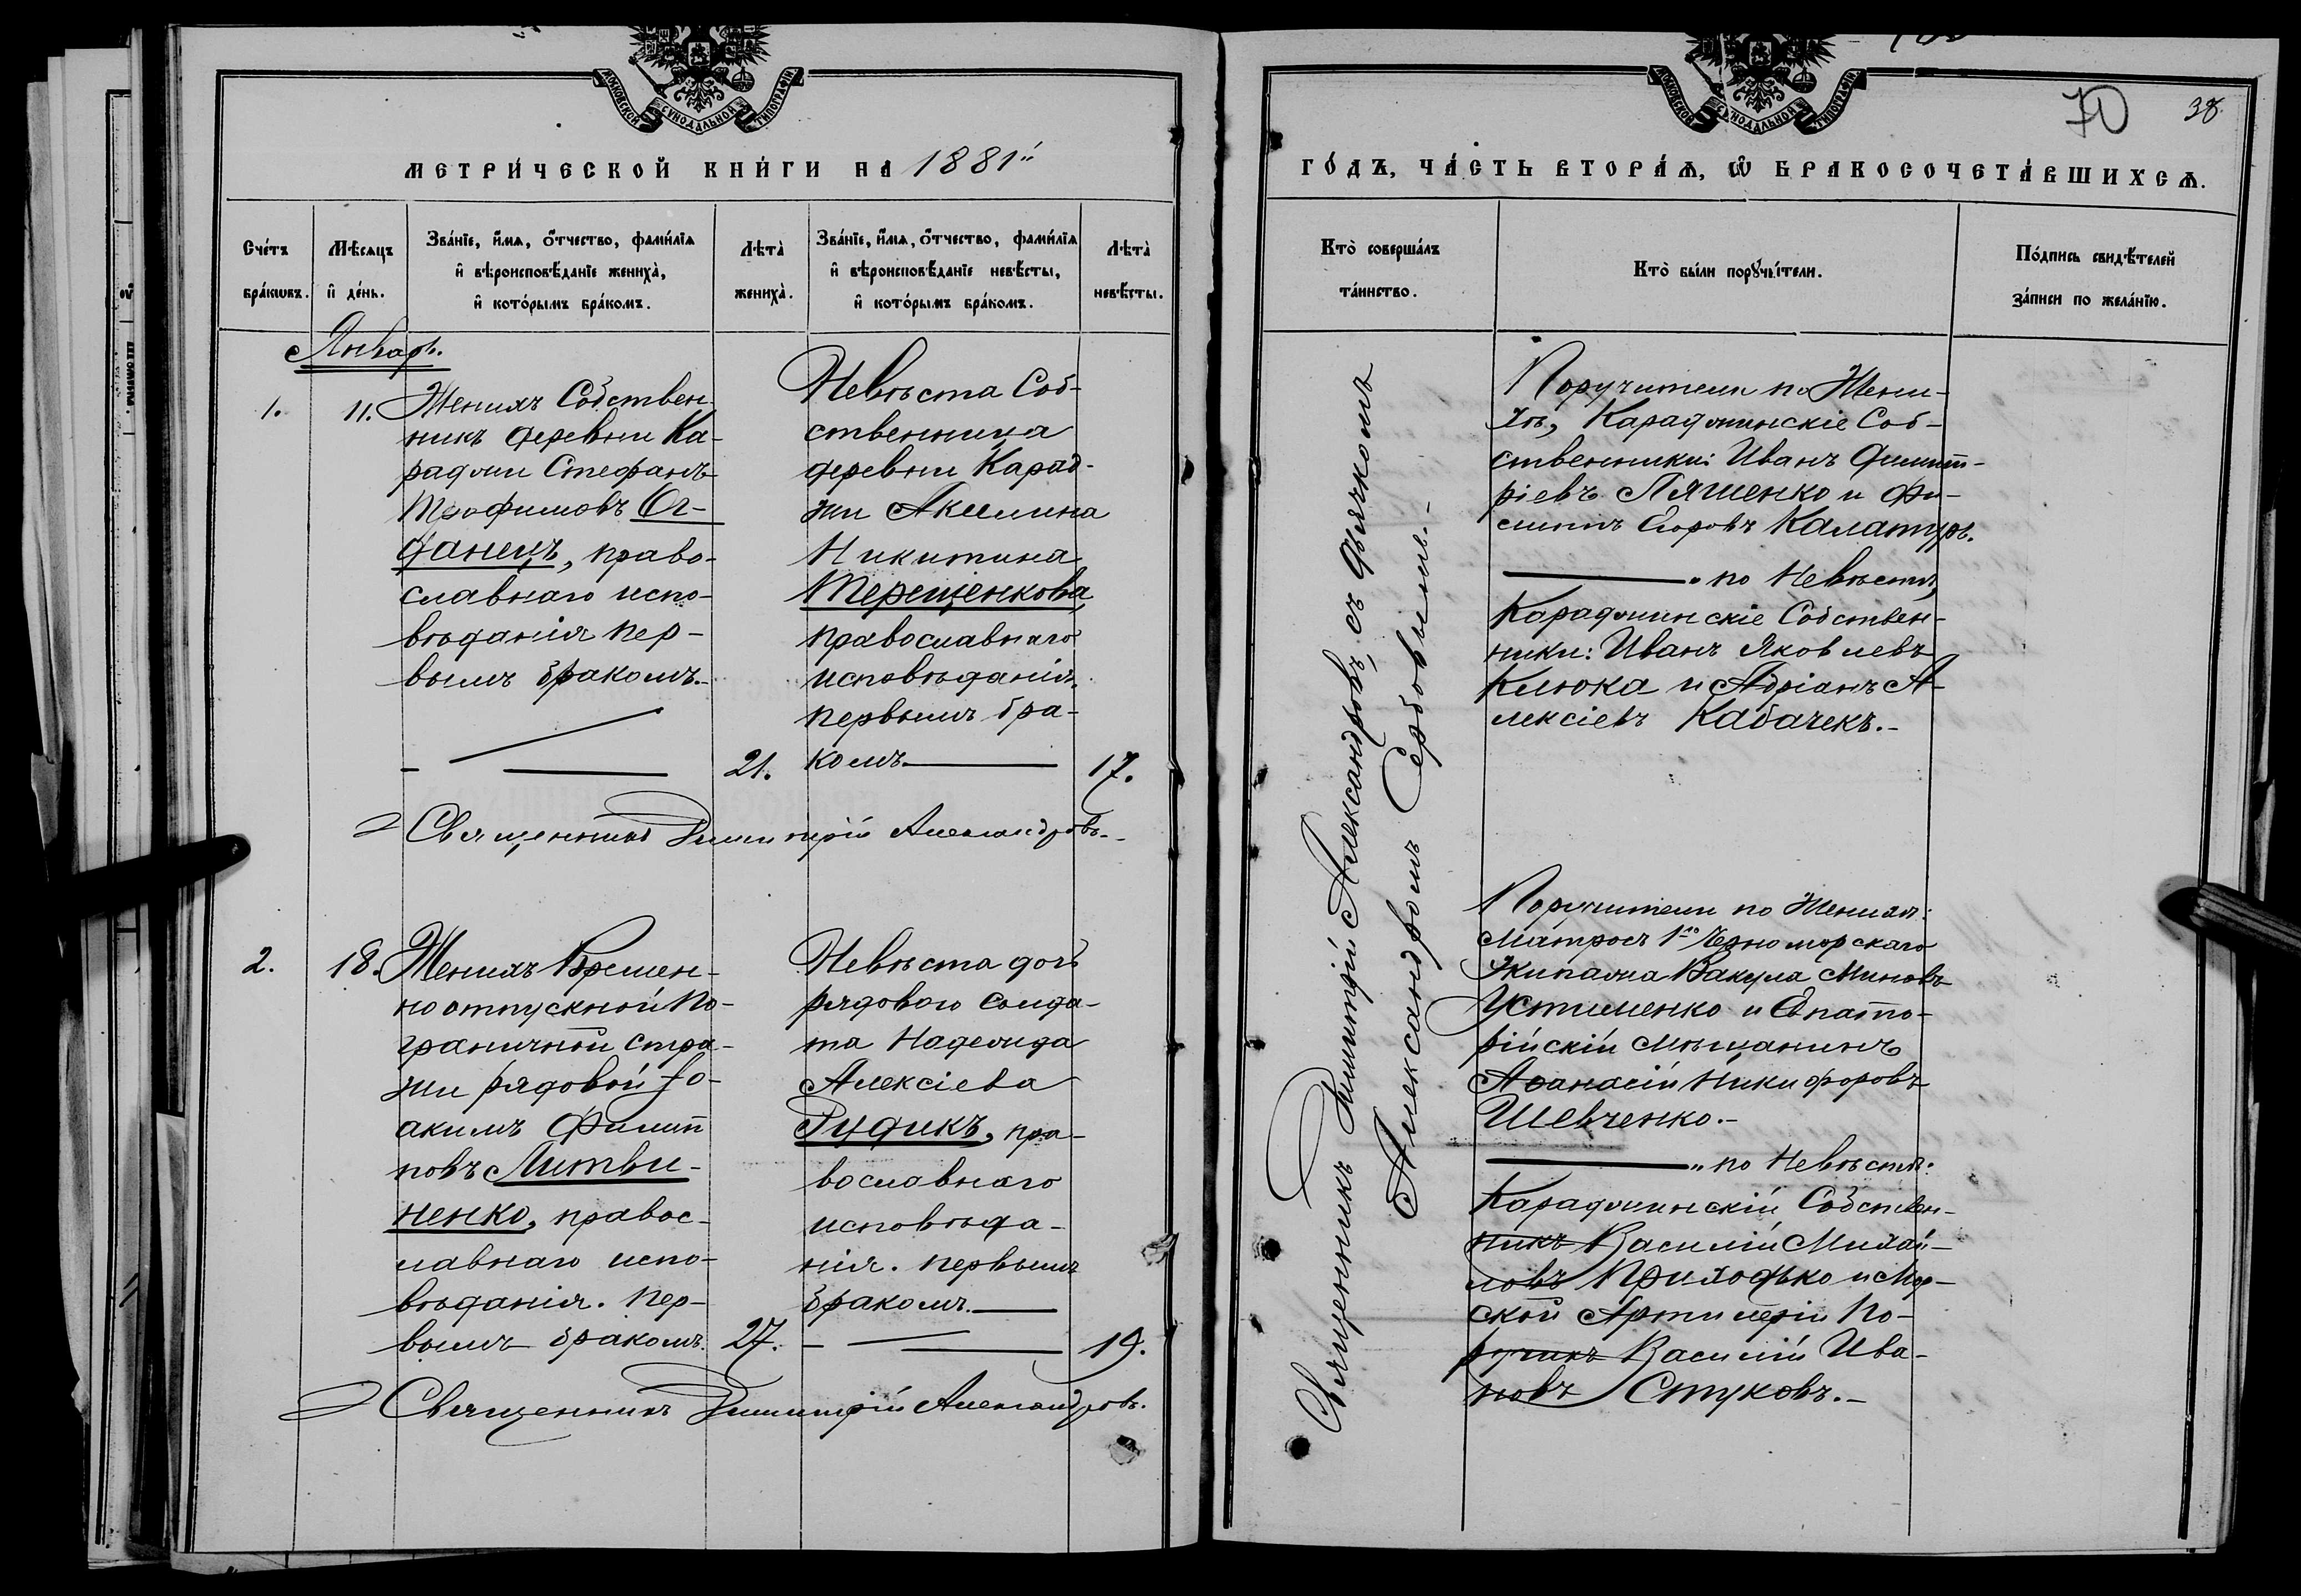 МОСКОВСКОЙ СѴНОДАЛЬНОЙ ТИПОГРАФІИ.
МЕТРИ́ЧЕСКОЙ КНИ́ГИ НА 1881й
Сче́тъ бра́кѡвъ.
Мѣ́сяцъ и҆ де́нь.
Зва́нїе, и҆́мѧ, ѻ҆́тчество, фами́лїѧ
и҆ вѣроисповѣ́данїе жениха̀,
и҆ кото́рымъ бра́комъ.
Лѣта̀ жениха̀.
Зва́нїе, и҆́мѧ, ѻ҆́тчество, фами́лїѧ
и҆ вѣроисповѣ́данїе невѣ́сты,
и҆ кото́рымъ бра́комъ.
Лѣта̀ невѣ́сты.
Январь.
1.
11.
Женихъ Собствен-
никъ деревни Ка-
раджи Стефанъ
Трофимовъ Ог-
данецъ, право-
славнаго испо-
вѣданія пер-
вымъ бракомъ.
21.
Невѣста Соб-
ственница
деревни Карад-
жи Акилина
Никитина
Терещенкова,
православнаго
исповѣданія,
первымъ бра-
комъ
17.
Священникъ Димитрій Александровъ.
2.
18.
Женихъ Времен-
но отпускной По-
граничной стра-
жи рядовой Іо-
акимъ Филип
повъ Литви-
ненко, правос-
лавнаго испо-
вѣданія. Пер-
вымъ бракомъ.
27.
Невѣста дочь
рядового Солда-
та Надежда
Алексіева
Рудикъ, пра-
вославнаго
исповѣда-
нія. первымъ
бракомъ.
19.
Священникъ Димитрій Александровъ.
МОСКОВСКОЙ СѴНОДАЛЬНОЙ ТИПОГРАФІИ.
70 38.
ГО́ДЪ, ЧА́СТЬ ВТОРА́Ѧ, Ѡ҆ БРАКОСОЧЕТА́ВШИХСѦ.
Кто̀ соверша́лъ
та́инство.
Кто̀ бы́ли порꙋчи́тели.
По́дпись свидѣ́телей
за́писи по жела́нїю.
Священникъ Димитрій Александровъ, съ дьячкомъ
Александромъ Сербовымъ.-
Поручители по Жени-
хѣ, Караджинскіе Соб-
ственники: Иванъ Димит-
ріевъ Ляшенко и Фи-
липпъ Егоровъ Калатуръ.
" по Невѣстѣ,
Караджинскіе Собствен-
ники: Иванъ Яковлевъ
Клюка и Адріанъ А-
лексіевъ Кабачекъ.-
Поручители по Женихѣ:
Матросъ 1го Черноморскаго
Экипажа Вакула Миновъ
Устименко и Евпато-
рійскій Мѣщанинъ
Афанасій Никифоровъ
Шевченко.-
" по Невѣстѣ:
Караджинскій Собствен-
никъ Василій Михай-
ловъ Приходько и Мор-
ской Артилеріи По-
ручикъ Василій Ива-
новъ Стуковъ.-